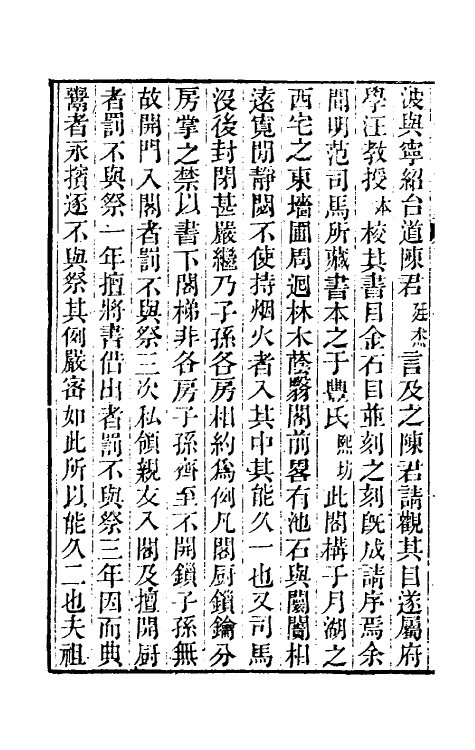 波與寧紹台道陳君廷杰言及之陳君請觀其目遂屬府
學汪教授本校其書目金石目並刻之刻既成請序焉余
聞明范司馬所藏書本之于豐氏熙坊此閣構于月湖之
西宅之東墻圃周迴林木蔭翳閣前畧有池石與闤闠相
遠寬閒靜閟不使持烟火者入其中其能久一也又司馬
沒後封閉甚嚴繼乃子孫各房相約爲例凡閣厨鎖鑰分
房掌之禁以書下閣梯非各房子孫齊至不開鎖子孫無
故開門入閣者罰不與祭三次私領親友入閣及擅開厨
者罰不與祭一年擅將書借出者罰不與祭三年因而典
鬻者永擯逐不與祭其例嚴密如此所以能久二也夫祖